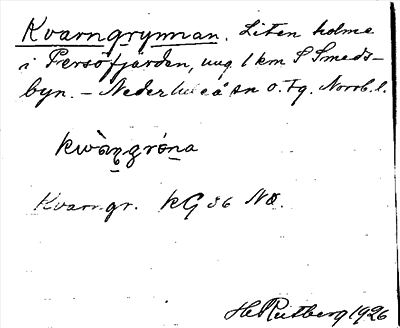 Kvarngrynnan. Liten holme
i Persöfjärden, ung. 1 km S Smeds-
byn. – Nederluleå sn o. tg. Norrb. l.
kwàṇgróna
Kvarngr. KG 36 NO.
H. Rutberg 1926